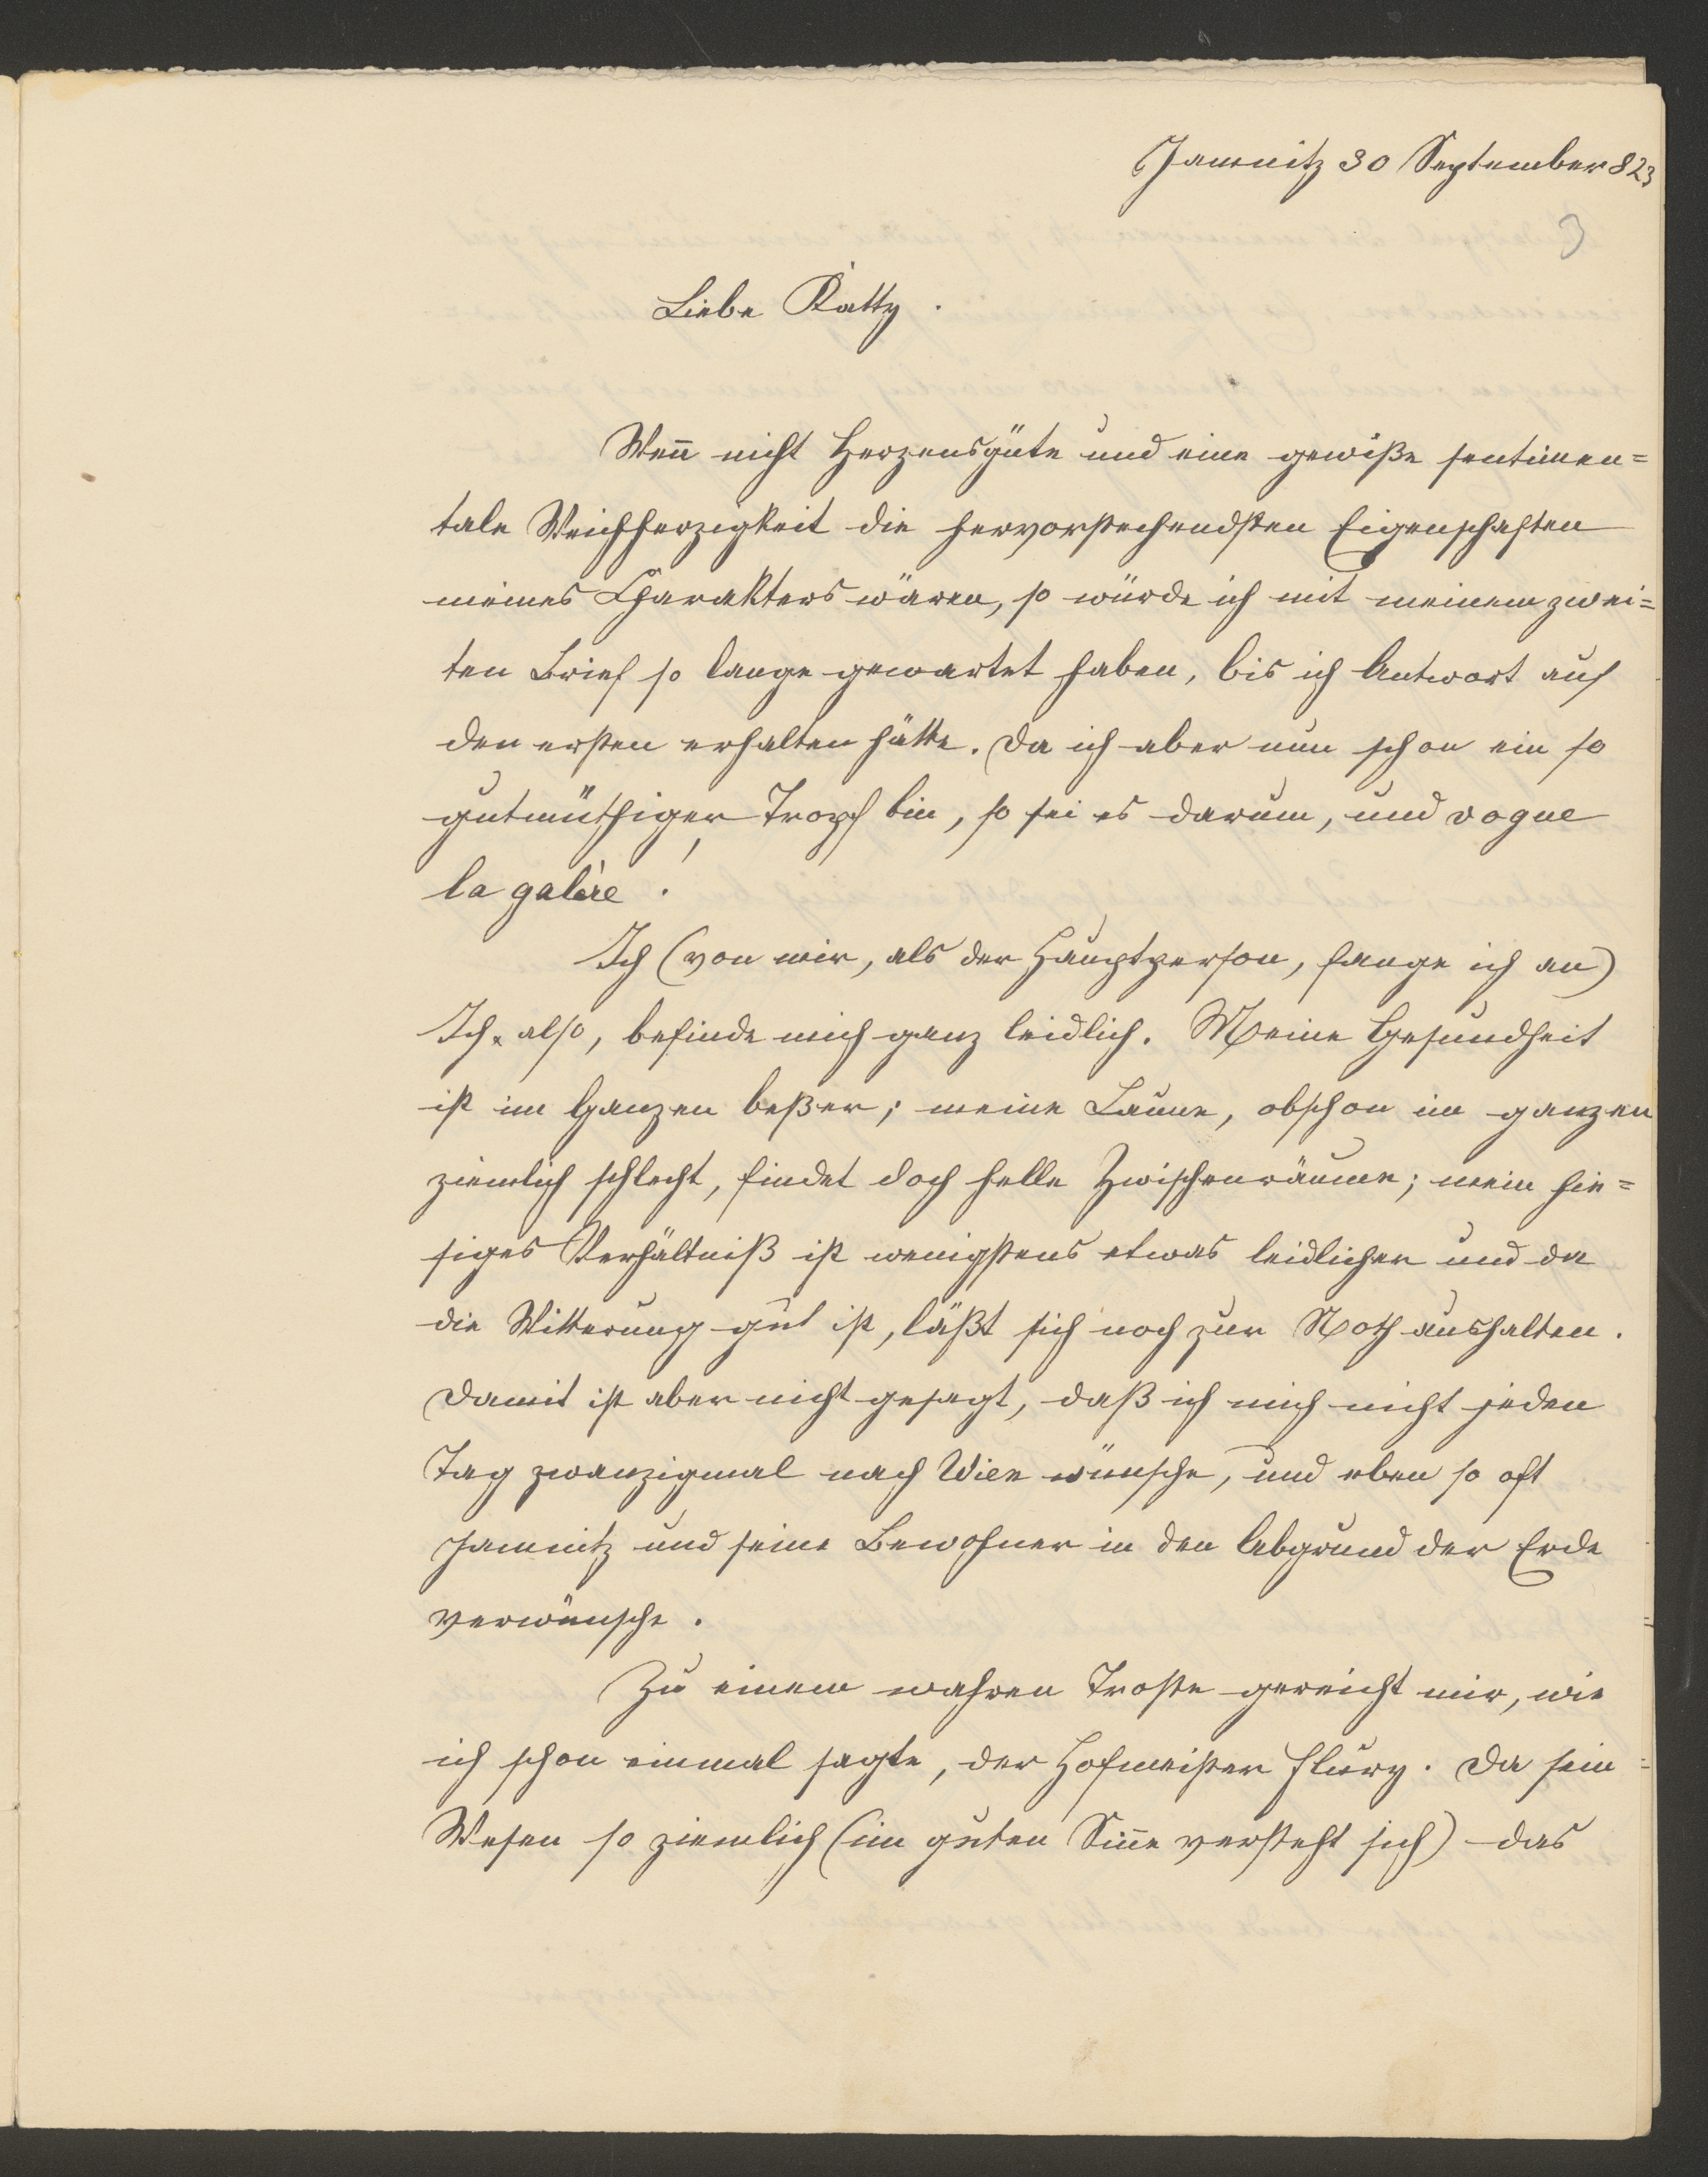 Jamnitz 30 September 823
3
Liebe Katty.
Weñ nicht Herzensgüte und eine gewiße sentimen=
tale Weichherzigkeit die hervorstechendsten Eigenschaften
meines Charakters wären, so würde ich mit meinem zwei=
ten Brief so lange gewartet haben, bis ich Antwort auf
den ersten erhalten hätte. Da ich aber nun schon ein so
gutmüthiger Tropf bin, so sei es darum, und vogue
la galère!
Ich (von mir, als der Hauptperson, fange ich an)
Ich also, befinde mich ganz leidlich. Meine Gesundheit
ist im Ganzen beßer; meine Laune, obschon im ganzen
ziemlich schlecht, findet doch helle Zwischenräume; mein hie=
siges Verhältniß ist wenigstens etwas leidlicher und da
die Witterung gut ist, läßt sich noch zur Noth aushalten.
Damit ist aber nicht gesagt, daß ich mich nicht jeden
Tag zwanzigmal nach Wien wünsche, und eben so oft
Jamnitz und seine Bewohner in den Abgrund der Erde
verwünsche.
Zu einem wahren Troste gereicht mir, wie
ich schon einmal sagte, der Hofmeister Flury. Da sein
Wesen so ziemlich (im guten Siñe versteht sich) das